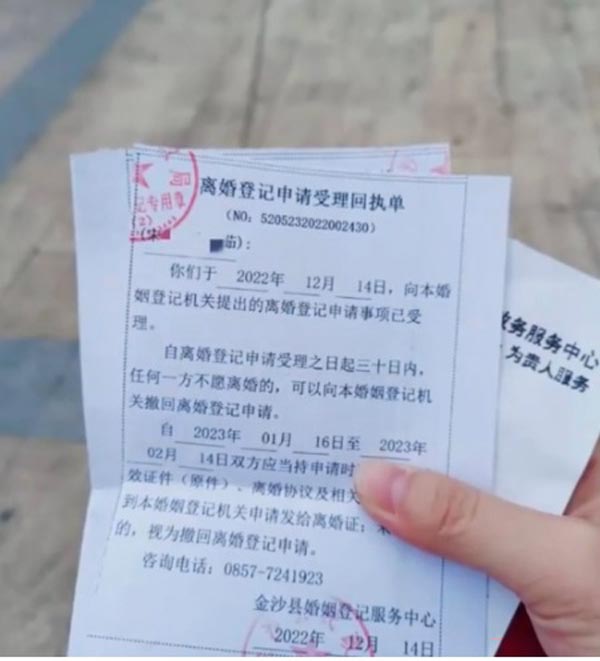 离婚登记申请受理回执单
(NO: 5205232022002430)
记专用章
(2)
茹):
你们于 2022年 12月 14日，向本婚
姻登记机关提出的离婚登记申请事项已受
理。
自离婚登记申请受理之日起三十日内，
任何一方不愿离婚的，可以向本婚姻登记机
关撤回离婚登记申请。
自 2023年 01月 16日至 2023年
02月 14日双方应当持申请时
效证件（原件）、离婚协议及相关
到本婚姻登记机关申请发给离婚证；未
的，视为撤回离婚登记申请。
咨询电话：0857-7241923
金沙县婚姻登记服务中心
2022年 12月 14日
务服务中心
为贵人服务